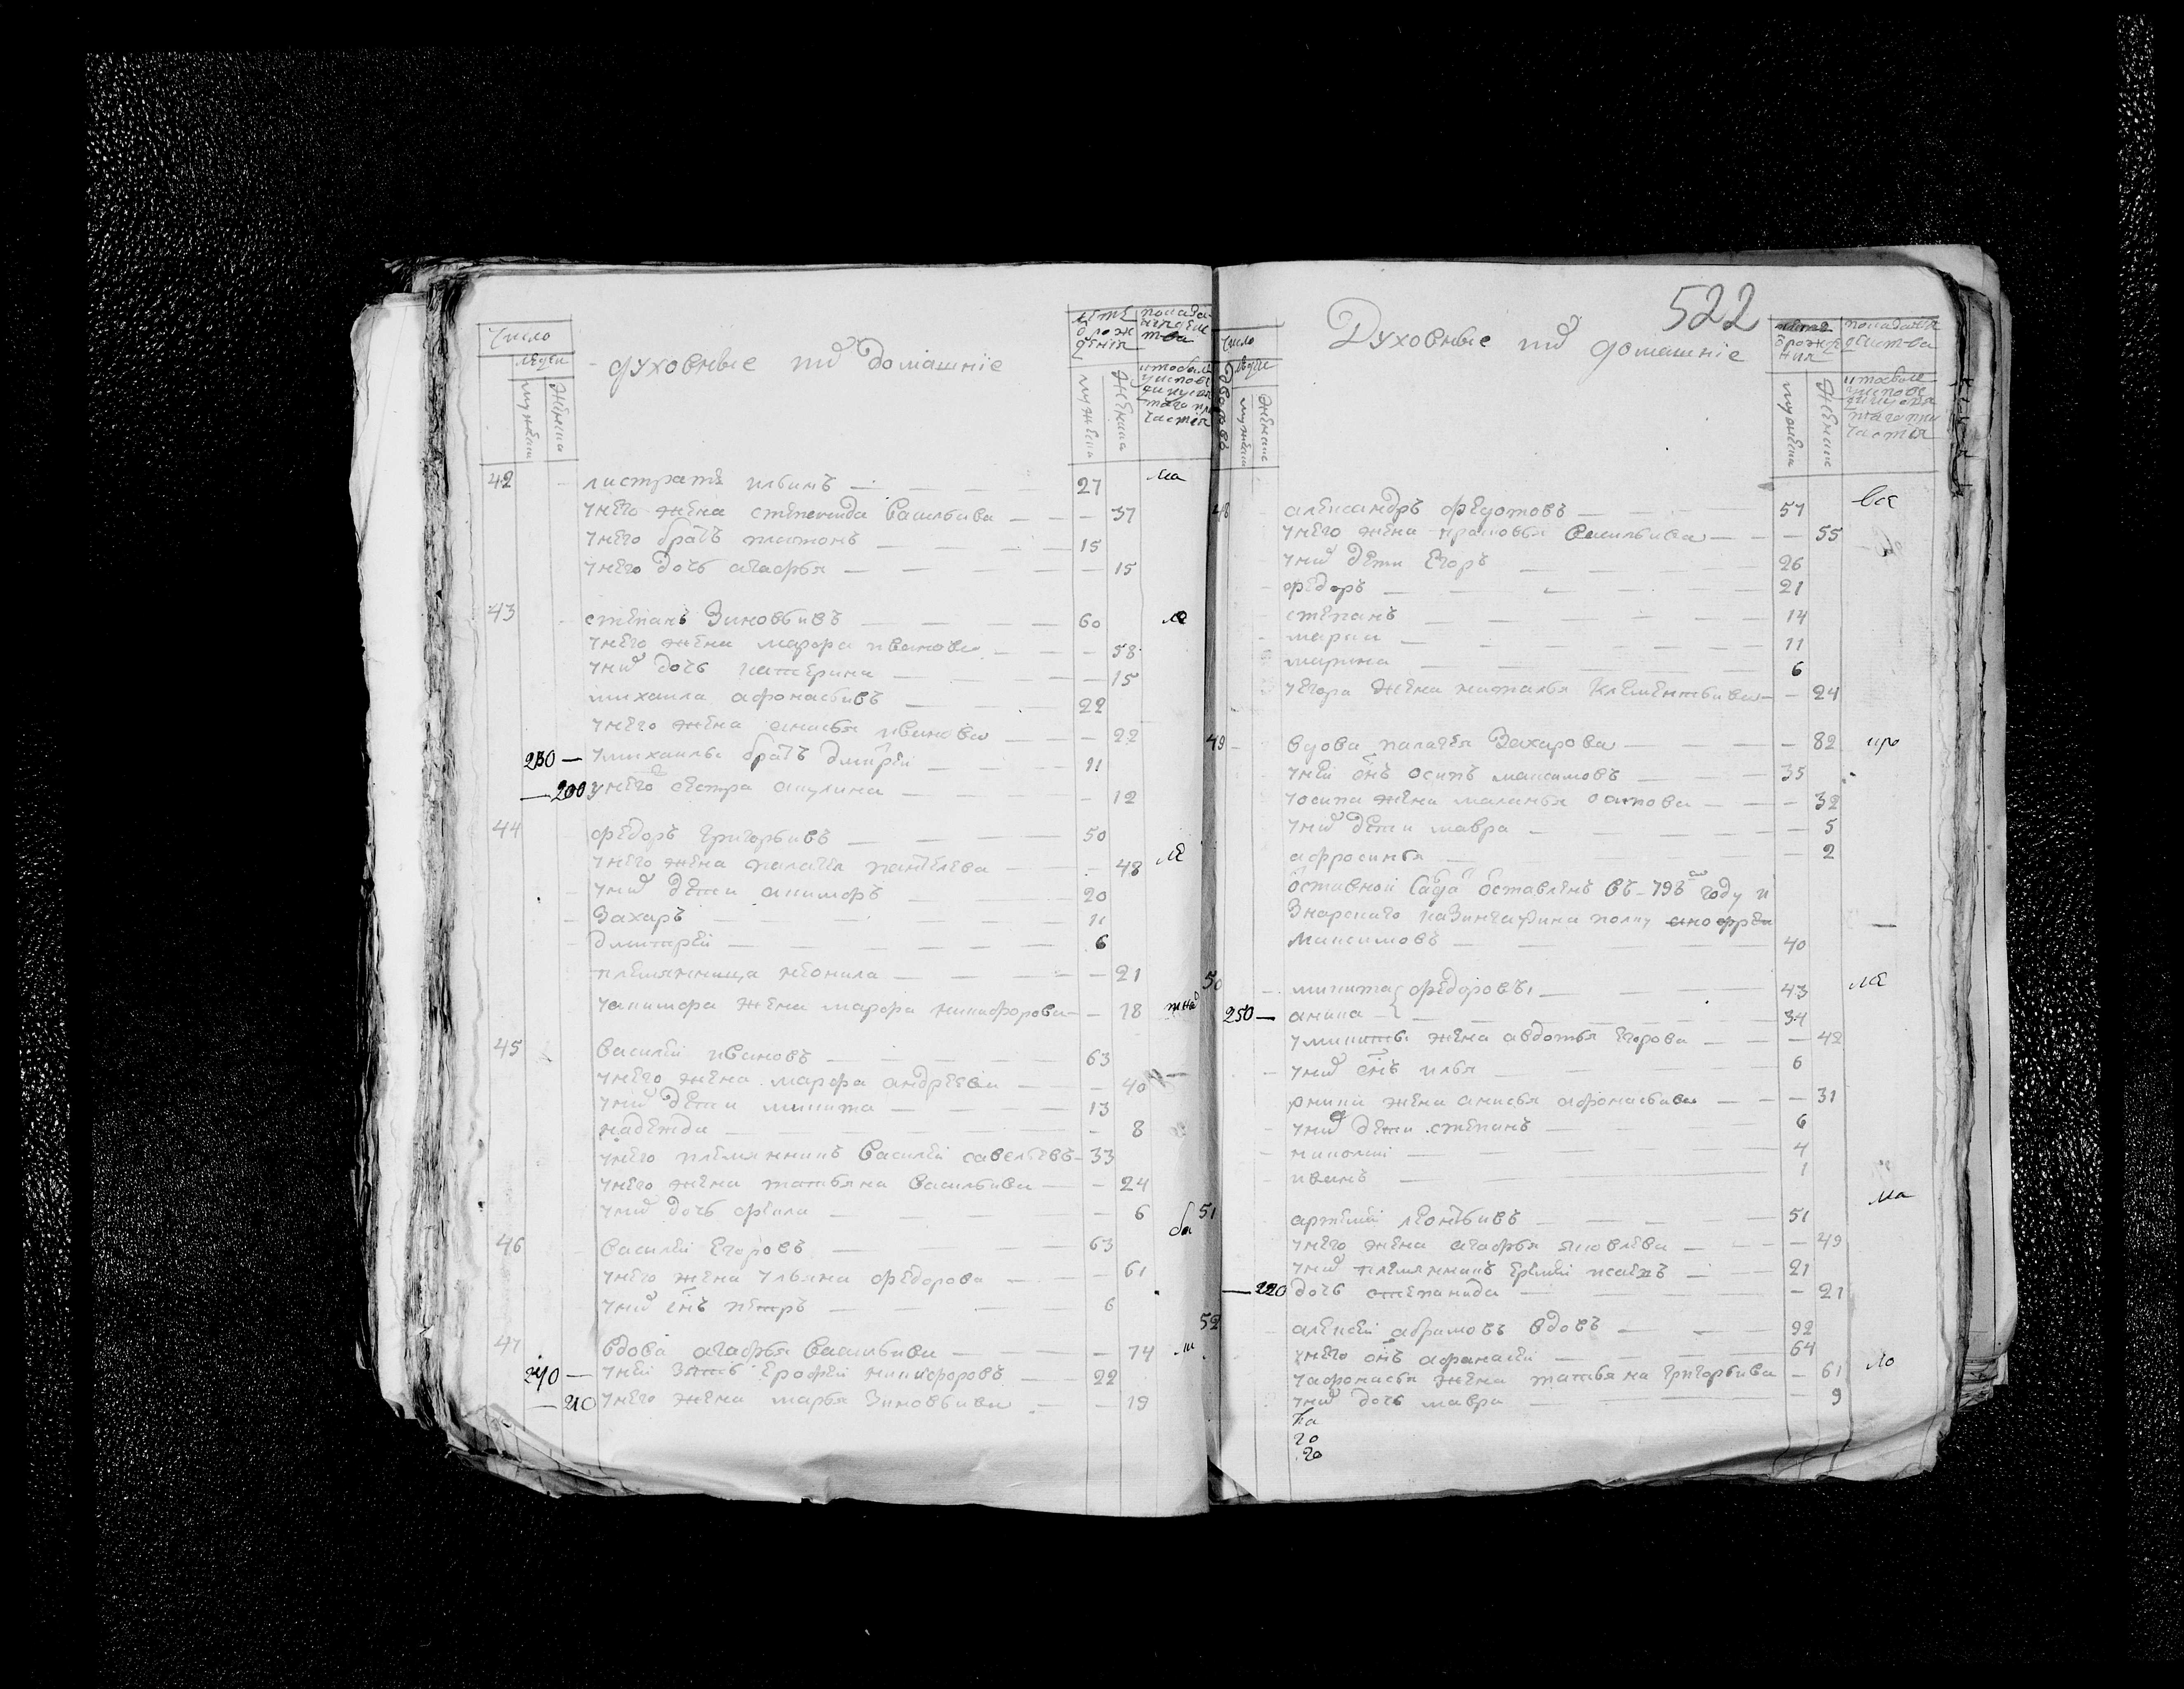 Число
людеи
мужеска
женска
духовные и их домашніе
мужеска
женска
42 листратъ ильинъ 27
у него жена степенида васильива 37
у него братъ платонъ 15
у него дочь агафья 15
43 степанъ Зиновьивъ 60
у него жена марфа иванова 58
у них дочь катерина 15
михаила афонасьивъ 22
у него жена анисья иванова 22
230 — у михаилы братъ дмитрей 11
— 200 у него сестра акулина 12
44 федоръ григорьивъ 50
у него жена палагея пантелева 48
у них дети акимфъ 20
Захаръ 11
дмитрей 6
племянница неонила 21
у акимфа жена марфа никифорова 18
45 василей ивановъ 63
у него жена марфа андреева 40
у них дети никита 13
надежда 8
у него племянникъ василей савельевъ 33
у него жена татьяна васильива 24
у них дочь фекла 6
46 василей егоровъ 63
у него жена ульяна федорова 61
у них снъ петръ 6
47 вдова агафья васильива 74
240 — у неи зять ерофей никифоровъ 22
— 210 у него жена марья Зиновьива 19
522
Число
людеи
дворовъ
мужеска
женска
Духовные и их домашніе
мужеска
женска
48 александръ федотовъ 57
у него жена прасковья васильива 55
у них дети егоръ 26
федоръ 21
степанъ 14
марки 11
марина 6
у егора жена наталья клементьива 24
49 вдова палагея Захарова 82
у неи снъ осипъ максимовъ 35
у осипа жена маланья 32
у них дети мавра 5
афросинья 2
максимовъ 40
50 никита федоровы 43
250 — аника 34
у никиты жена авдотья егорова 42
у них снъ илья 6
у аники жена анисья афонасьива 31
у них дети степанъ 6
николай 4
иванъ 1
51 артемей леонтьивъ 51
у него жена агафья яковлева 49
у них племянникъ еремей исаевъ 21
— 220 дочь степанида 21
52 алексей абрамовъ вдовъ 92
у него снъ афанасей 64
у афонасья жена татьяна григорьива 61
у них дочь мавра 9